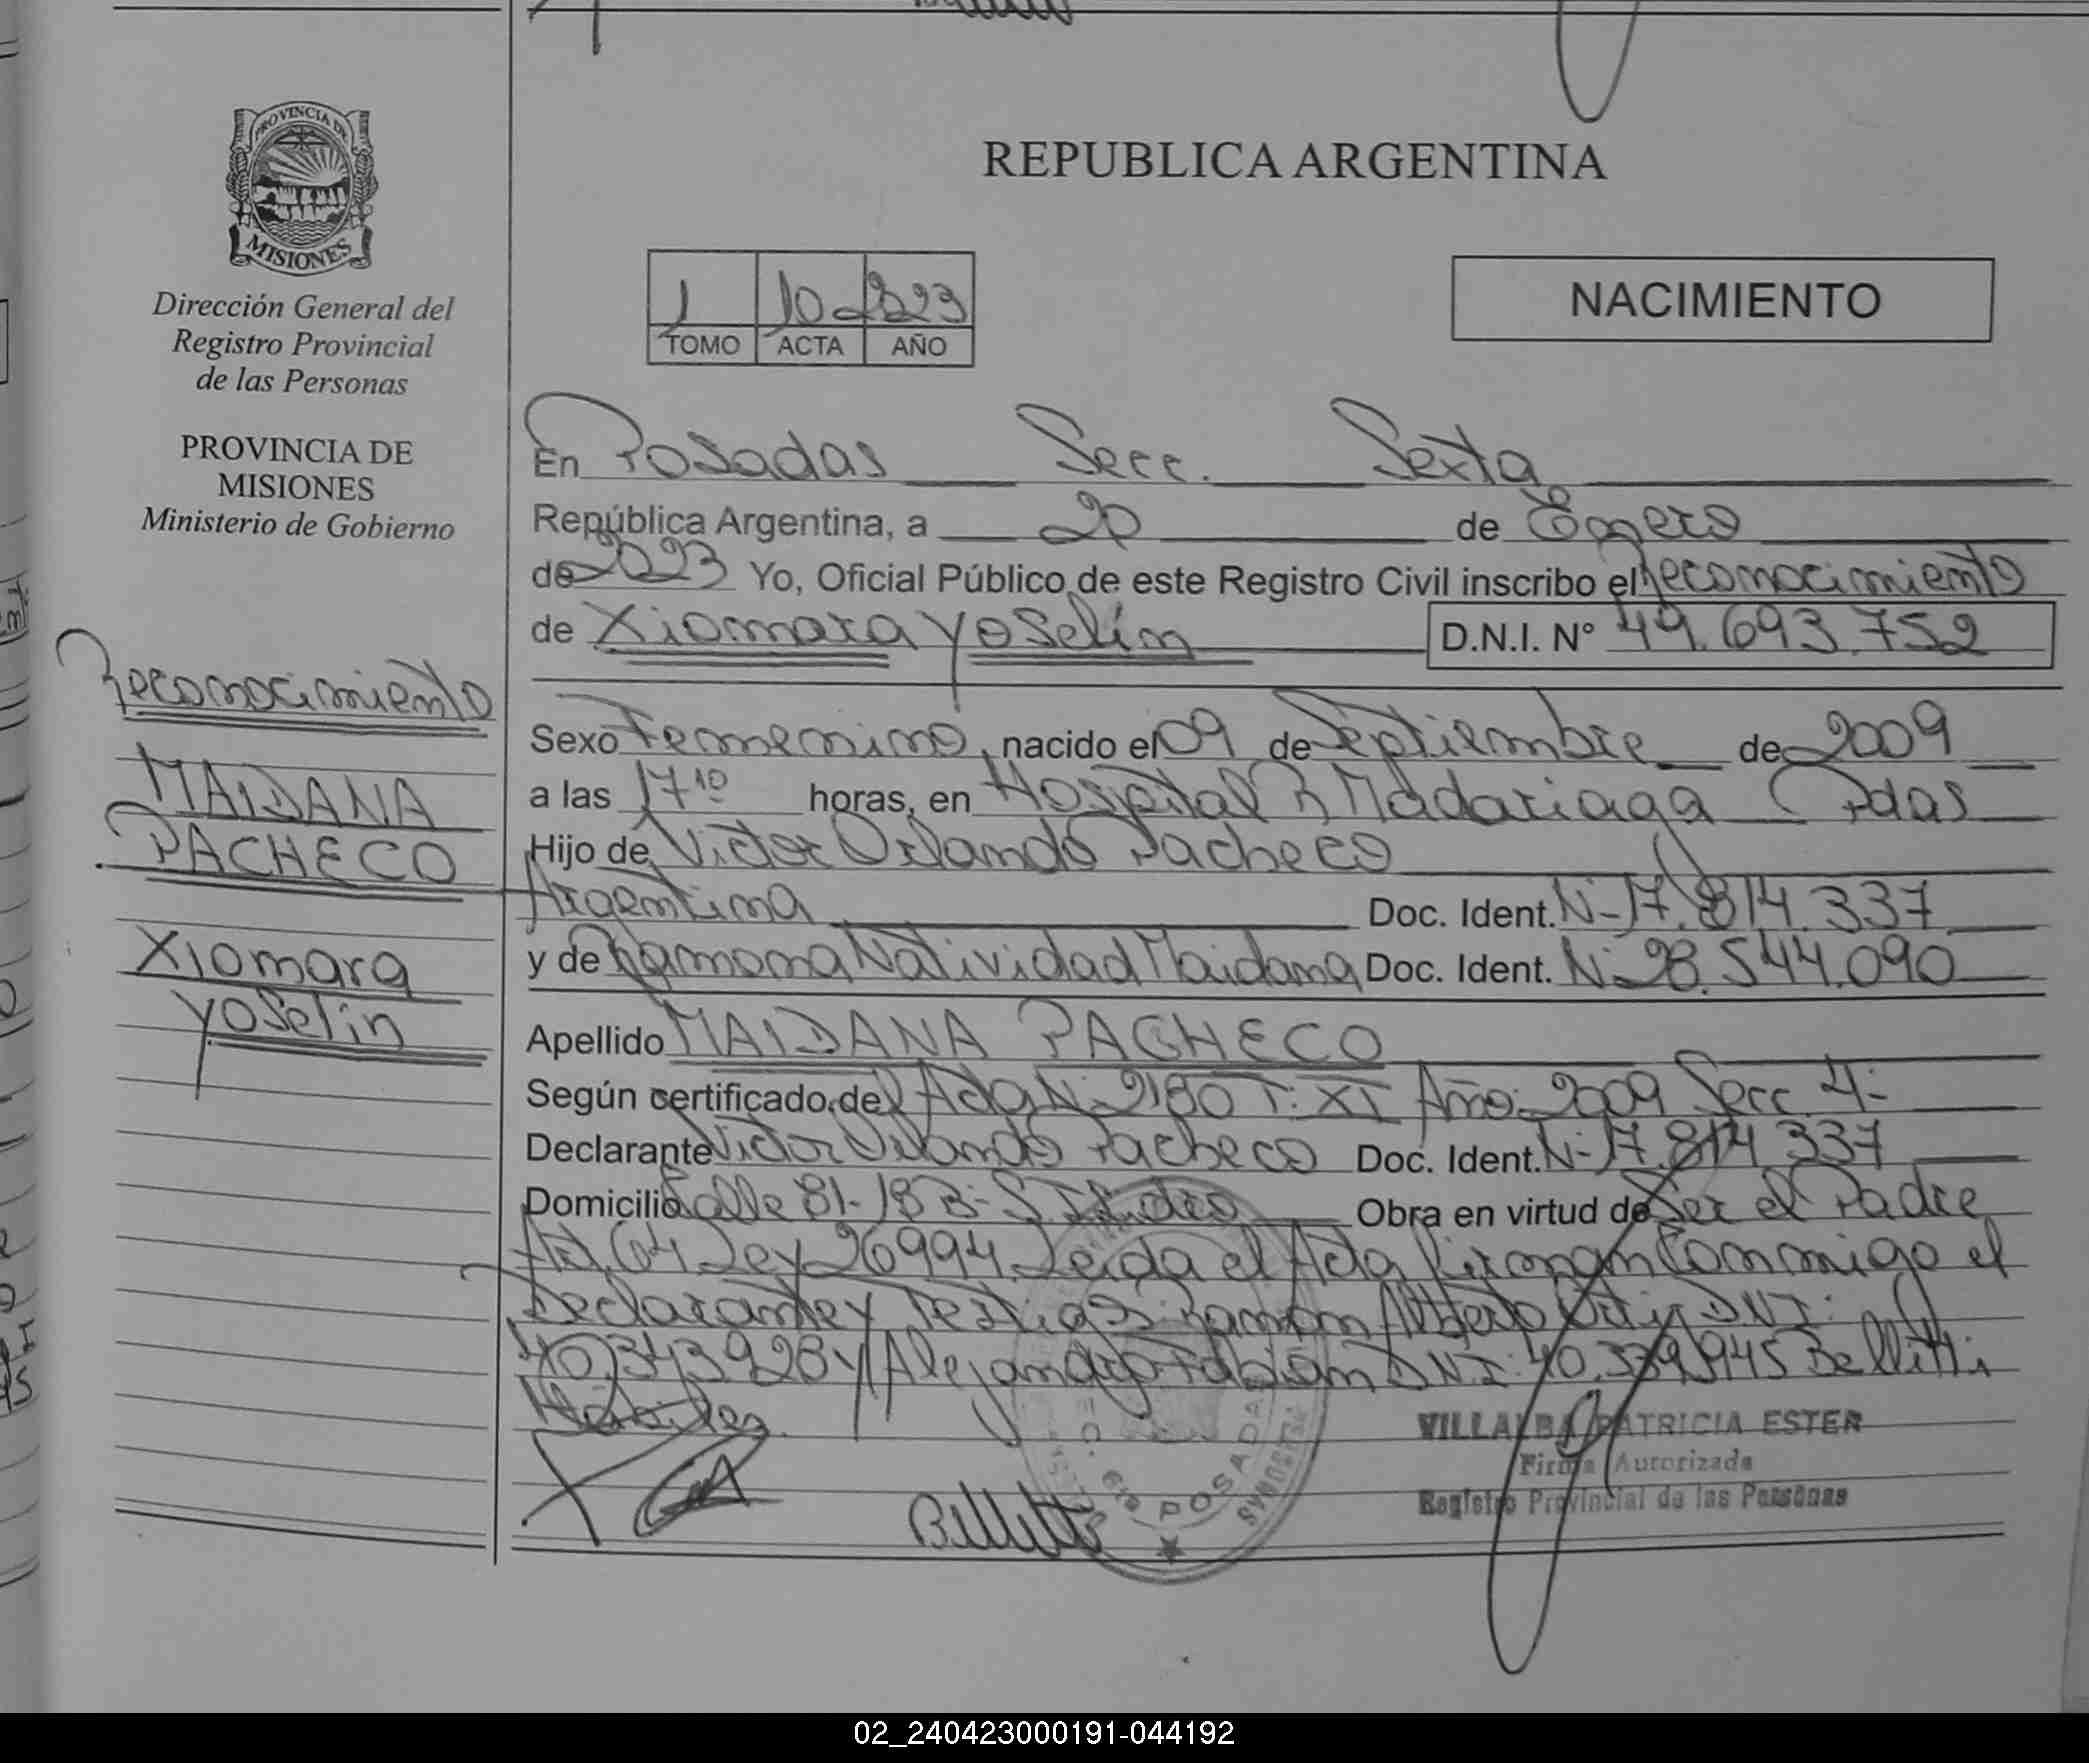 PROVINCIA DE
MISIONES
Dirección General del
Registro Provincial
de las Personas
PROVINCIA DE
MISIONES
Ministerio de Gobierno
Reconocimiento
MAIDANA
PACHECO
Xiomara
Yoselin
REPUBLICA ARGENTINA
1 10 2023
TOMO ACTA AÑO
NACIMIENTO
En Posadas Secc. Sexta
República Argentina, a 20 de Enero
de 2023 Yo, Oficial Público de este Registro Civil inscribo el Reconocimiento
de Xiomara Yoselin D.N.I. N° 49.693.752
Sexo Femenino, nacido el 09 de Septiembre de 2009
a las 17 10 horas, en Hospital R Madariaga Pdas
Hijo de Victor Orlando Pacheco
Argentina Doc. Ident. N- 17.814.337
y de Ramona Natividad Maidana Doc. Ident. N- 28.544.090
Apellido MAIDANA PACHECO
Según certificado del Acta N- 2180 T: XI Año: 2009 Secc 4-
Declarante Victor Orlando Pacheco Doc. Ident. N- 17.814 337
Domicilio Calle 81- 18 B- S. Isidro Obra en virtud de Ser el Padre
Art. 64 Ley 26994. Leida el Acta firman Conmigo el
Declarante y Testigos: Ramón Alberto DNI:
40.343.928 y Alejandro Fabián DN.I: 40.339.945 Bellitti
Hábiles
VILLALBA PATRICIA ESTER
Firma Autorizada
Registro Provincial de las Personas
SEC. 6ta POSADAS
PERSONAS
02_240423000191-044192